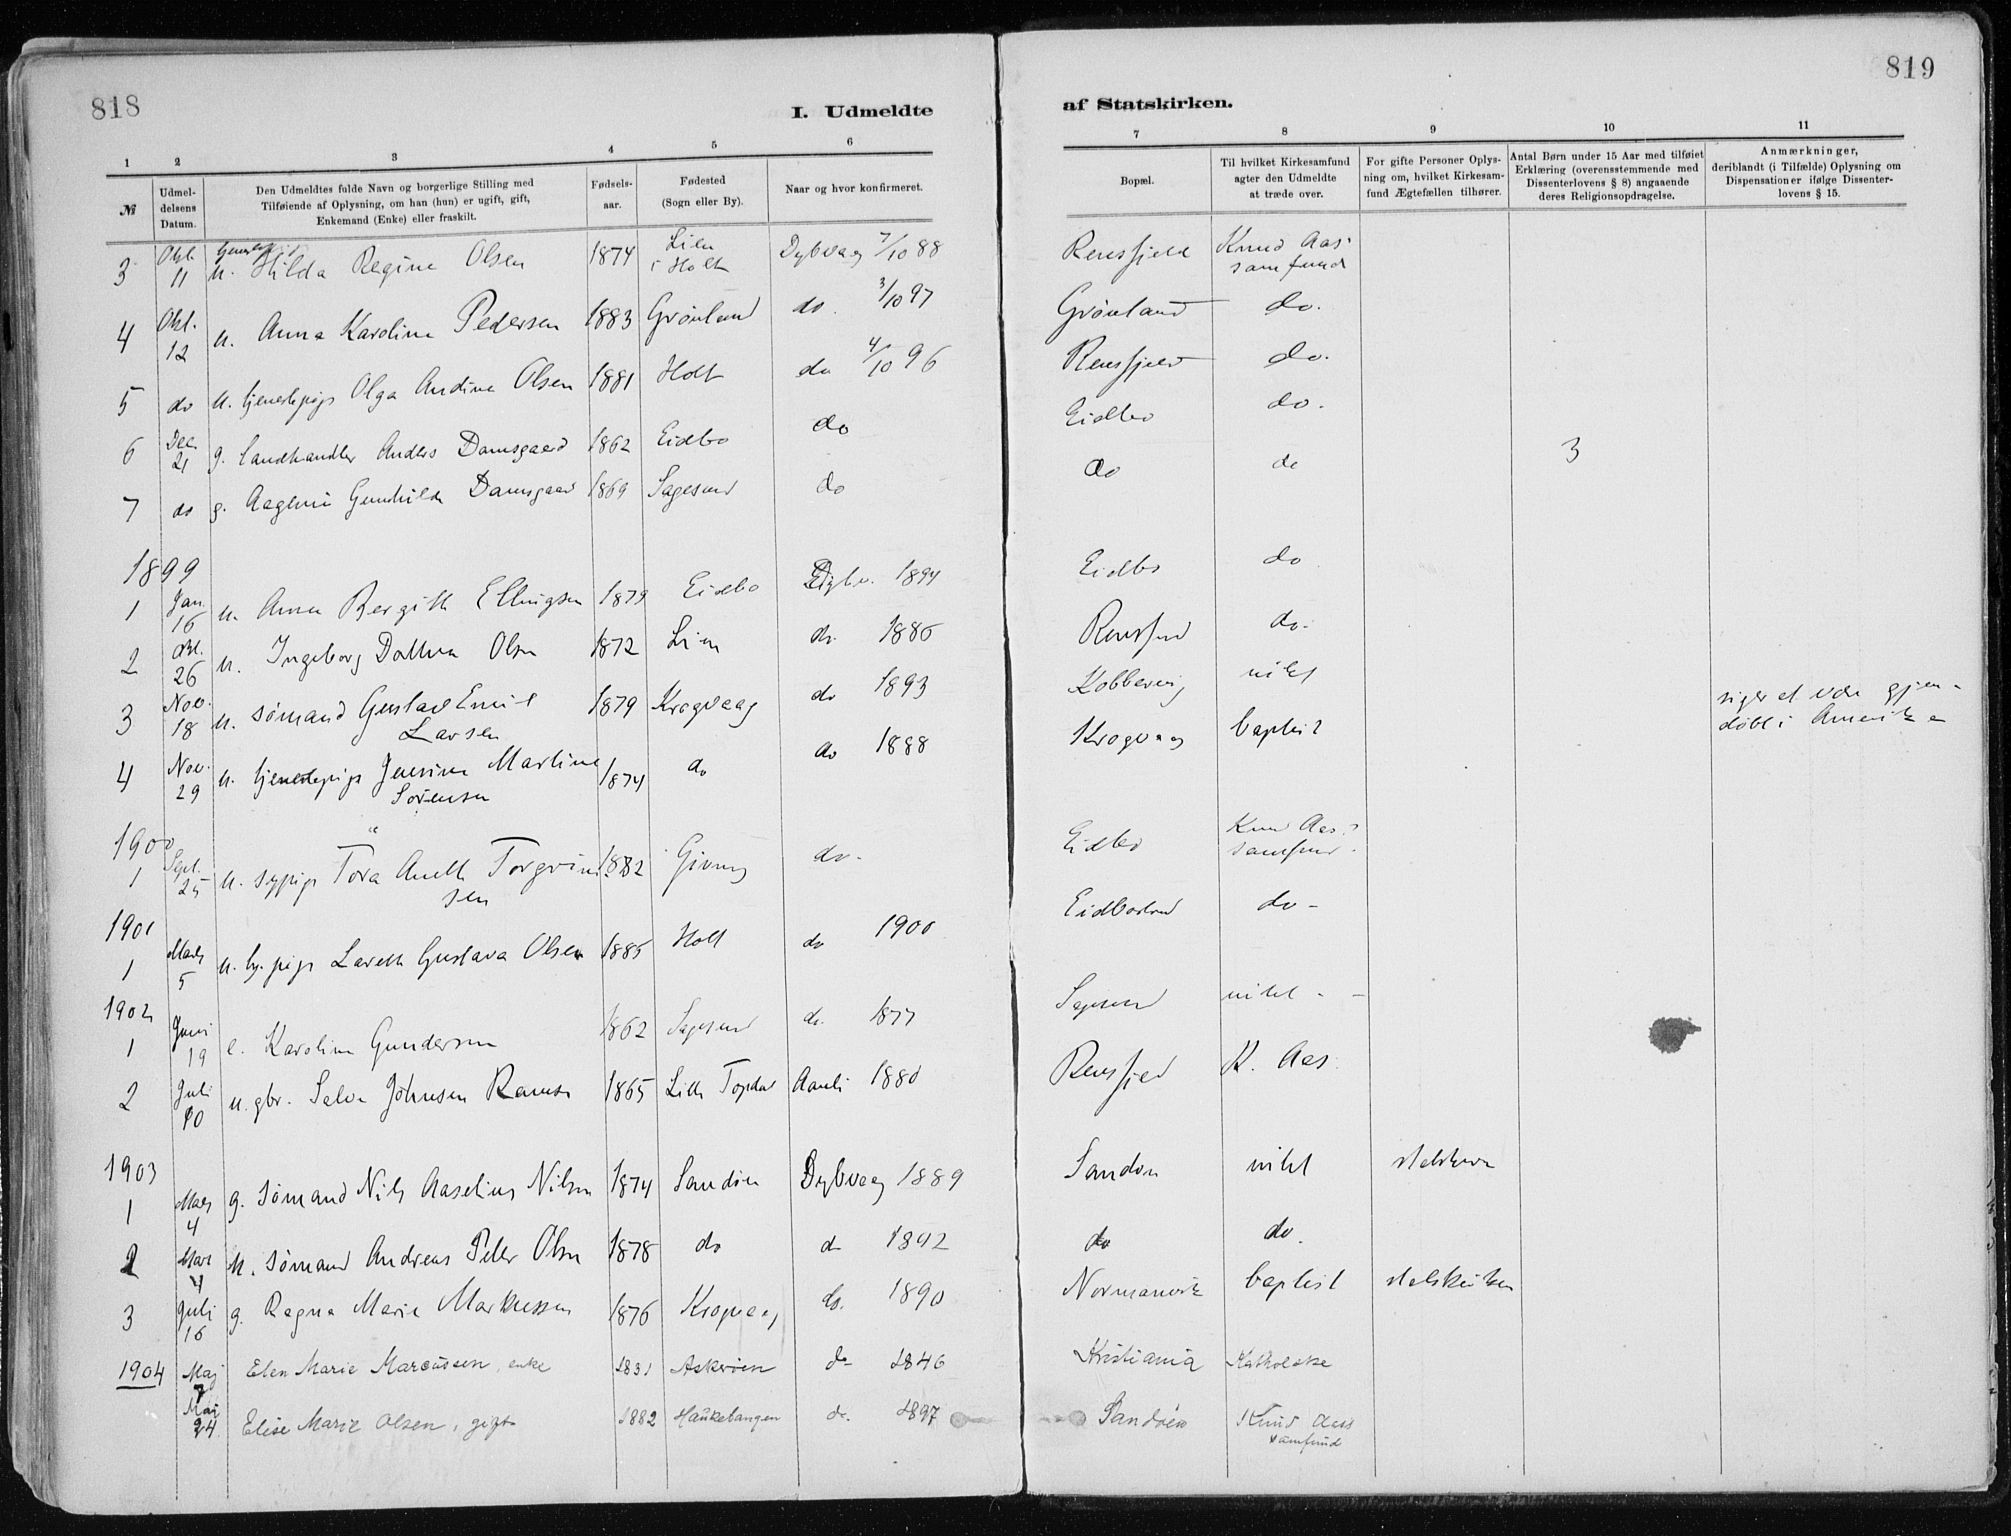 818
I. Udmeldte
af Statskirken.
819
1 2 3 4 5 6 7 8 9 10 11
№
Udmeldelsens Datum.
Den Udmeldtes fulde Navn og borgerlige Stilling med
Tilføiende af Oplysning, om han (hun) er ugift, gift,
Enkemand (Enke) eller fraskilt.
Fødselsaar.
Fødested
(Sogn eller By).
Naar og hvor konfirmeret.
Bopæl.
Til hvilket Kirkesamfund
agter den Udmeldte
at træde over.
For gifte Personer Oplysning om, hvilket Kirkesamfund Ægtefællen tilhører.
Antal Børn under 15 Aar med tilføiet
Erklæring (overensstemmende med
Dissenterlovens § 8) angaaende
deres Religionsopdragelse.
Anmærkninger,
deriblandt (i Tilfælde) Oplysning om
Dispensationer ifølge Dissenterlovens § 15.
3 Okt. 11 u. Hilda Regine Olsen 1874 Lien i Holt Dybvaag 7/10 88 Rensfjeld Knud Aas' samfund
4 Okt. 12 u. Anna Karoline Pedersen 1883 Grönland do. 3/10 97 Grönland do.
5 do u. tjenestepige Olga Andine Olsen 1881 Holt do 4/10 96 Rensfjeld do.
6 Dec. 21 g. Landhandler Anders Damsgaard 1862 Eidbo do Eidbo do.
7 do g. Gunhilde Damsgaard 1869 Sagesund do do do 3
1899
1 Jan. 16 u. Anna Bergith Ellingsen 1879 Eidbo Dybv. 1894 Eidbo do
2 Okt. 26 u. Ingeborg Olsen 1872 Lien do. 1886 Rensfjeld do.
3 Nov. 18 u. sømand Gustav Emil Larsen 1879 Krogvaag do 1893 intet siger at være gjendöbt i Amerika
4 Nov. 29 u. tjenestepige Jensine Martine Sörensen 1874 do do 1888 Krogvaag baptist
1900
1 Sept. 25 u. sypige Tora Aneth Torgrimsen 1882 Giving do. Eidbo Knud Aas' samfund.
1901
1 Marts 5 u. sy.pige Laveth Gustava Olsen 1885 Holt do 1900 Eidbo do
1902
1 Juni 19 e. Karoline Gundersen 1862 Sagesund do. 1877 Sagesund intet
2 Juli 10 u. gbr. Johnsen 1865 Aamli 1880 Rensfjeld K. Aas.
1903
1 Marts 4 g. sömand Nils Aaselius Nilsen 1874 Sandöen Dybvaag 1889 Sandöen intet statskirken
2 Mars 4 u. sömand Andreas Peter Olsen 1878 do do 1892 do do.
3 Juli 16 g. Ragna Marie Markussen 1876 Krogvaag do. 1890 Normanvik baptist statskirken
1904 Maj 7 Elen Marie Marcussen, enke 1831 Askeröen do 1846 Kristiania Katholske
Maj 24 Elise Marie Olsen, gift 1882 Haukebangen do. 1897 Sandöen Knud Aas samfund